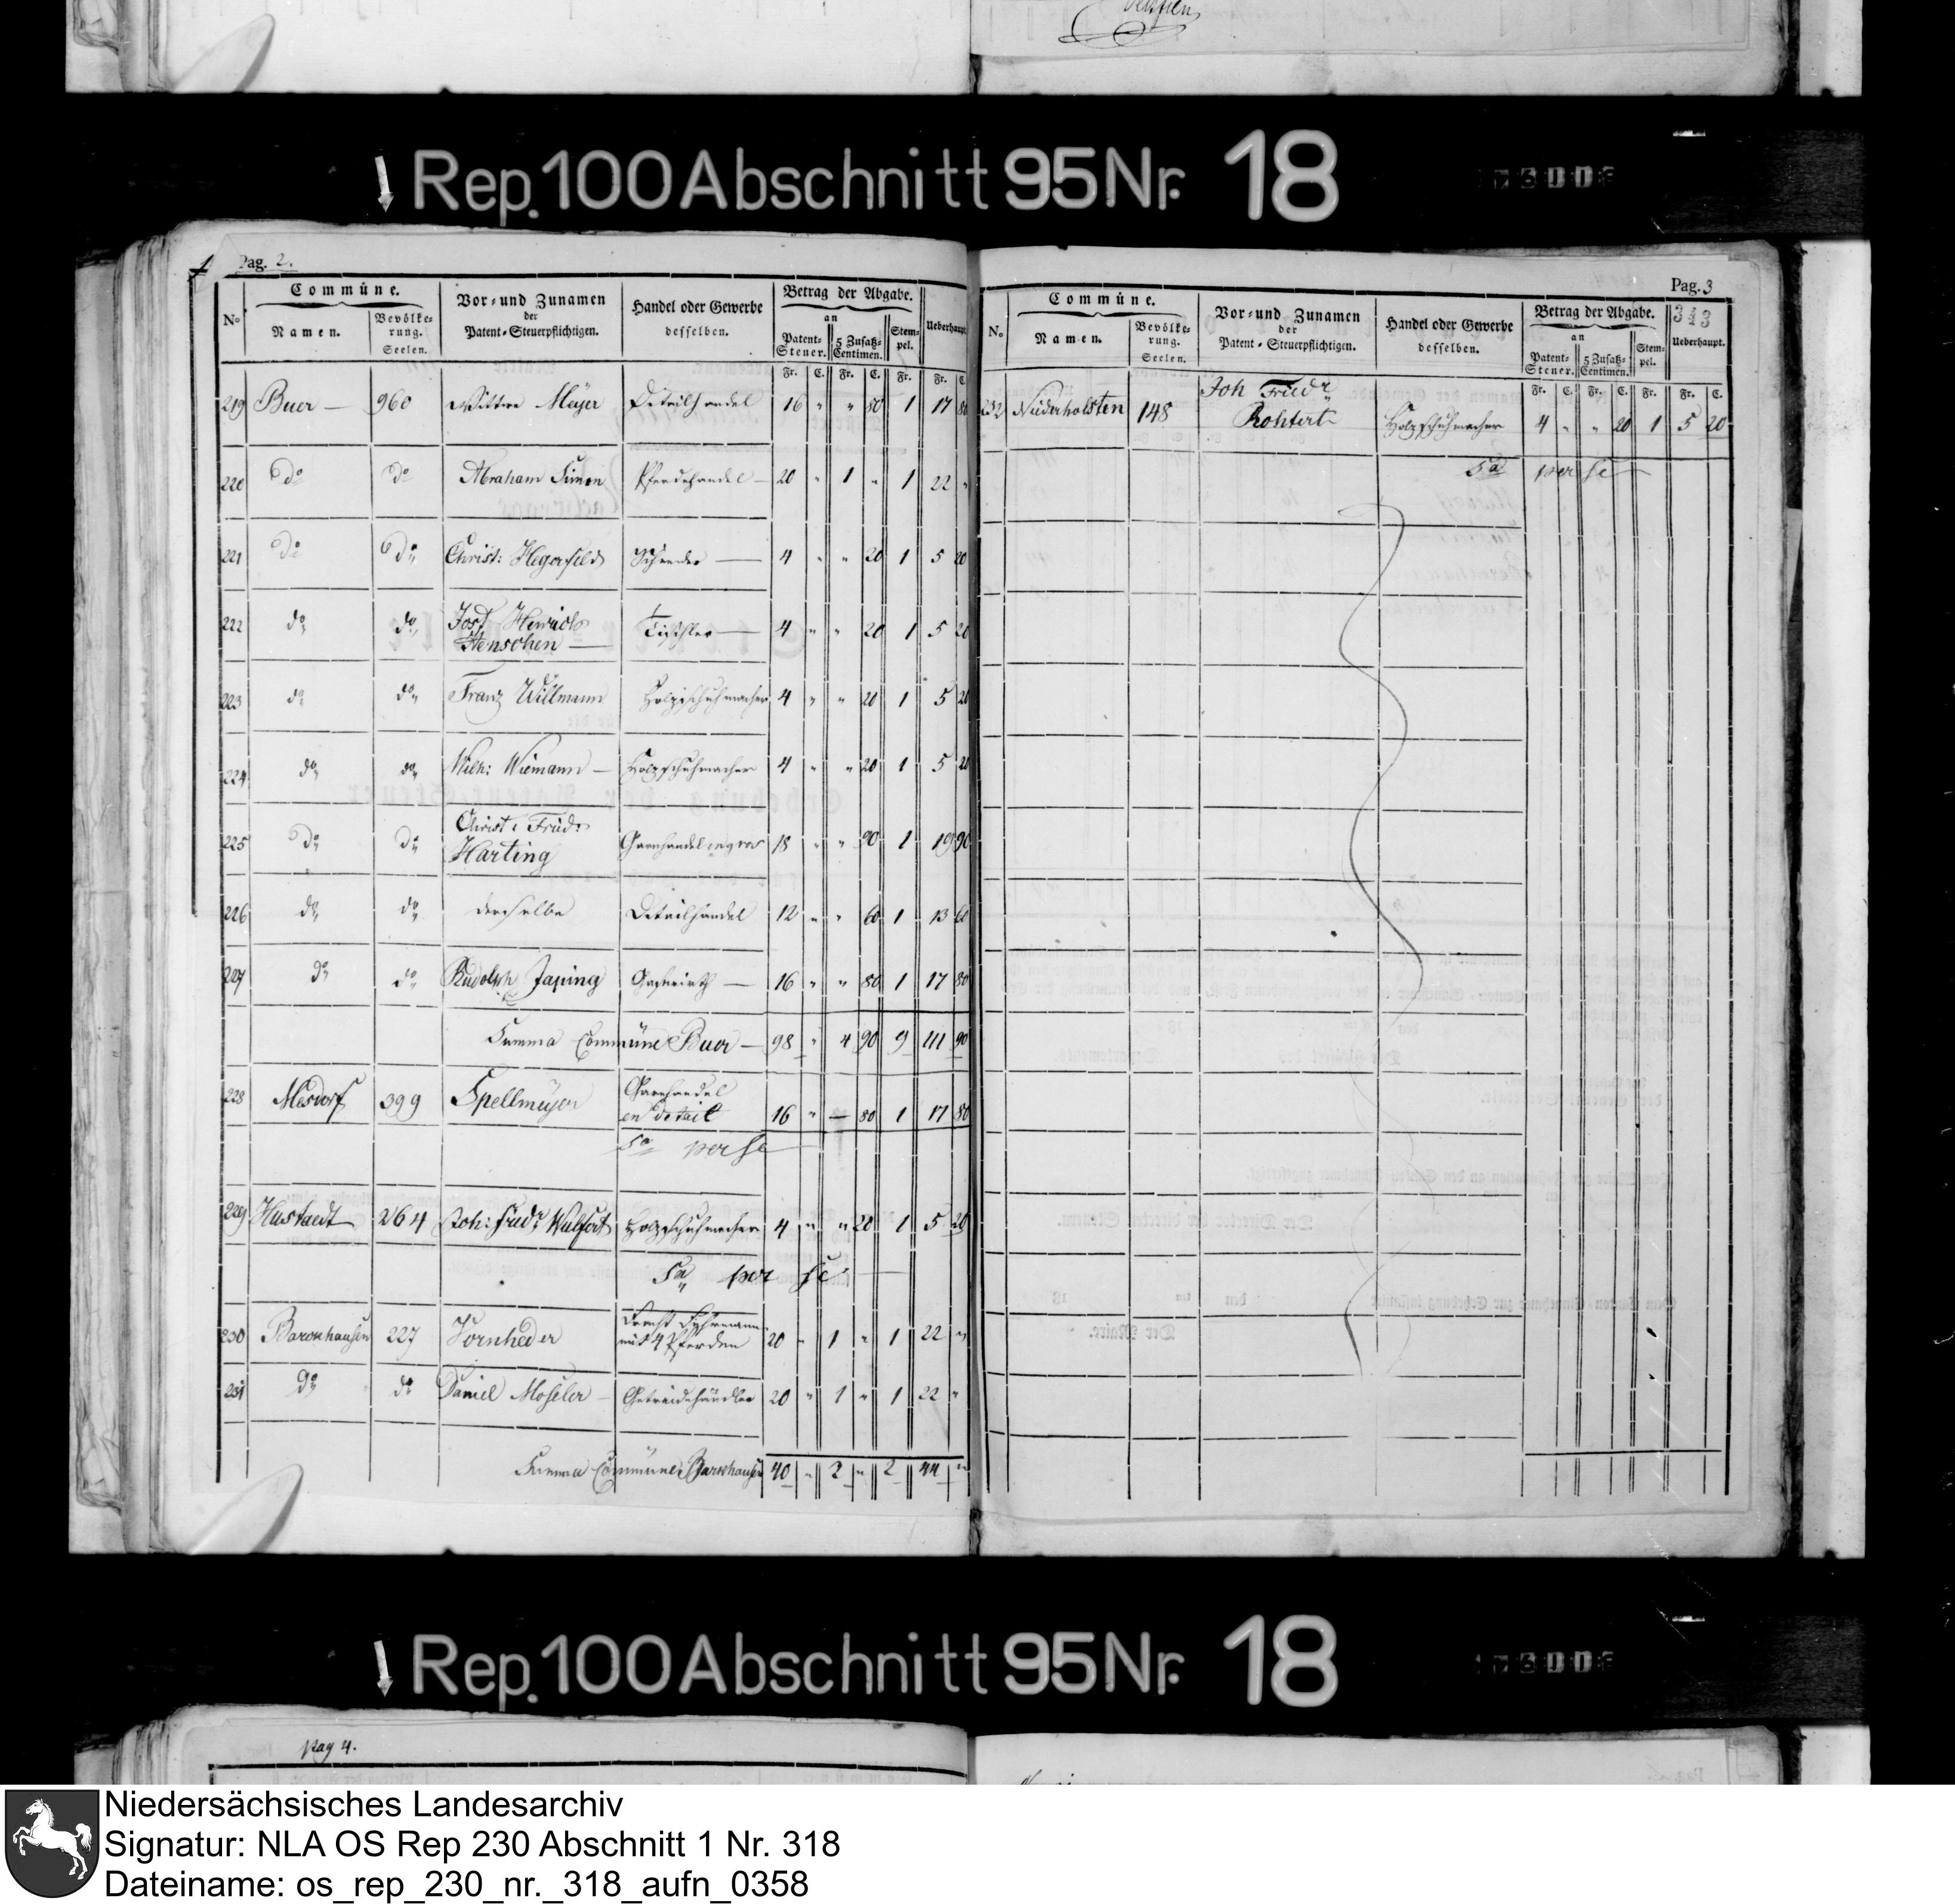 Rep. 100 Abschnitt 95 Nr. 18
Pag. 2.
Commüne.
Betrag der Abgabe.
No
Namen.
Bevölkerung.
Seelen.
Vor- und Zunamen
der
Patent-Steuerpflichtigen.
Handel oder Gewerbe
desselben.
an
Patent-Steuer.
5 Zusatz-Centimen.
Stempel.
Ueberhaupt
Fr. C. Fr. C. Fr. Fr. C.
219 Buer — 960 Wittwe Meyer Detailhandel 16 " " 80 1 17 80
220 do do Abraham Simon Pferdehandel — 20 " 1 " 1 22 "
221 do do Christ: Hegerfeld Schneider — 4 " " 20 1 5 20
222 do do Jost Henrich
Henschen — Tischler — 4 " " 20 1 5 20
223 do do Franz Willmann Holzschuhmacher 4 " " 20 1 5 20
224 do do Wilh: Wiemann — Holzschuhmacher 4 " " 20 1 5 20
225 do do Christ: Fried:
Harting Garnhandel en gros 18 " " 90 1 19 90
226 do do derselbe Detailhandel 12 " " 60 1 13 60
227 do do Rudolph Japing Gastwirth — 16 " " 80 1 17 80
Summa Commüne Buer — 98 " 4 90 9 111 90
228 Mesdorf 399 Spellmeyer Garnhandel
en detail 16 " — 80 1 17 80
Sa per se
229 Hustaedt 264 Joh: Fried: Wulfert Holzschuhmacher 4 " " 20 1 5 20
Sa per se
230 Barkhausen 227 Vornheder Fracht Fuhrmann
mit 4 Pferden 20 " 1 " 1 22 "
231 do do Daniel Moseler — Getreidehändler 20 " 1 " 1 22 "
Summa Commüne Barkhausen 40 " 2 " 2 44 "
Pag. 3
343
Commüne.
Betrag der Abgabe.
No.
Namen.
Bevölkerung.
Seelen.
Vor- und Zunamen
der
Patent-Steuerpflichtigen.
Handel oder Gewerbe
desselben.
an
Patent-Steuer.
5 Zusatz-Centimen.
Stempel.
Ueberhaupt.
Fr. C. Fr. C. Fr. Fr. C.
232 Niederholsten 148 Joh Friedr
Rohtert Holzschuhmacher 4 " " 20 1 5 20
Sa per se
Rep. 100 Abschnitt 95 Nr. 18
pag 4.
Niedersächsisches Landesarchiv
Signatur: NLA OS Rep 230 Abschnitt 1 Nr. 318
Dateiname: os_rep_230_nr._318_aufn_0358